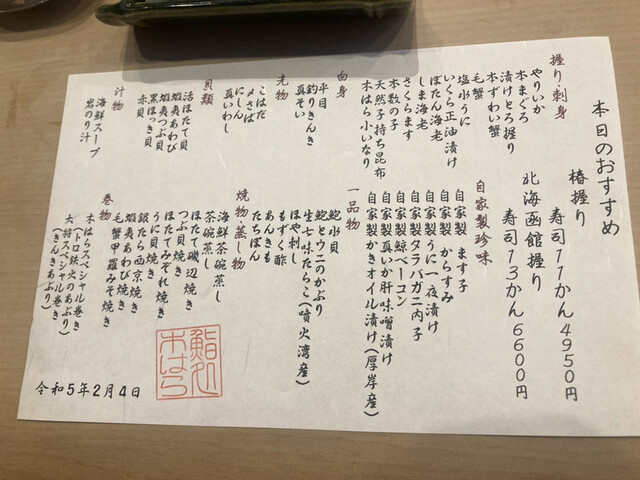 本日のおすすめ
椿握り 寿司11かん4950円
北海函館握り 寿司13かん6600円
握り・刺身
やりいか
本まぐろ
漬けとろ握り
本ずわい蟹
毛蟹
塩水うに
いくら正油漬け
ぼたん海老
しま海老
さくらます
本数の子
天然子持ち昆布
木はら小いなり
白身
平目
釣りきんき
真そい
光物
こはだ
〆さば
にしん
真いわし
貝類
活ほたて貝
蝦夷あわび
蝦夷つぶ貝
黒ほっき貝
赤貝
汁物
海鮮スープ
岩のり汁
自家製珍味
自家製 ます子
自家製 からすみ
自家製うに一夜漬け
自家製タラバガニ内子
自家製鯨ベーコン
自家製真いか肝味噌漬け
自家製かきオイル漬け(厚岸産)
一品物
鮑小貝
鮑とウニのかぶり
生七味たらこ(噴火湾産)
ほや刺し
もずく酢
あんきも
たちぽん
焼物・蒸し物
海鮮茶碗蒸し
茶碗蒸し
つぶ貝焼き
ほたて磯辺焼き
ほたてみぞれ焼き
うに貝焼き
銀たら西京焼き
蝦夷あわび焼き
毛蟹甲羅みそ焼き
巻物
木はらスペシャル巻き
(トロ鉄火のあぶり)
大将スペシャル巻き
(きんきあぶり)
令和5年2月4日
鮨処
木はら